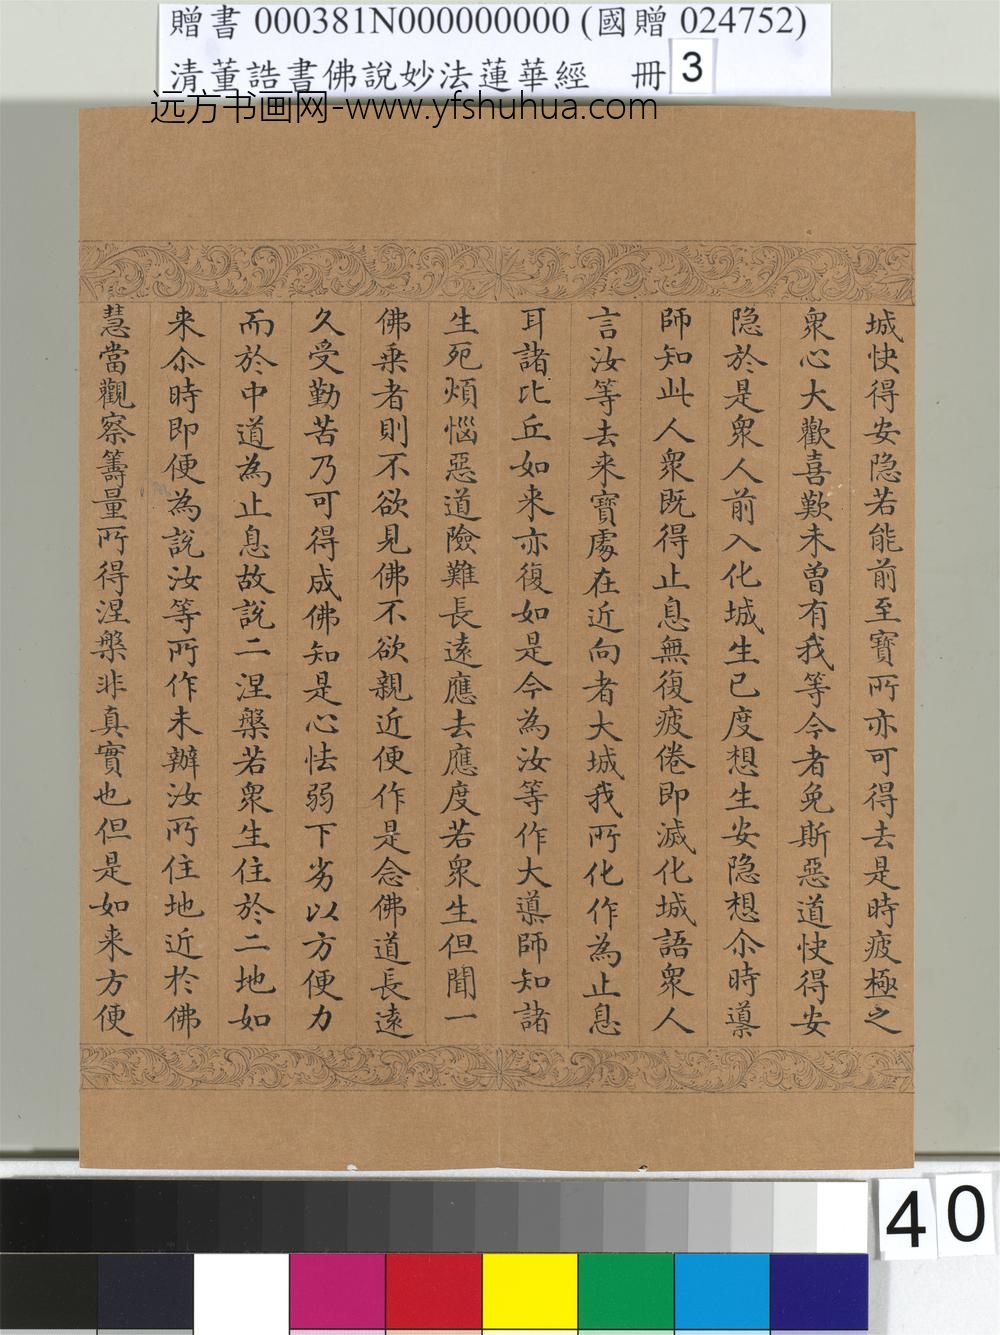 贈書 000381N000000000 (國贈 024752)
清董誥書佛說妙法蓮華經 冊 3
远方书画网-www.yfshuhua.com
城快得安隐若能前至寶所亦可得去是時疲極之
衆心大歡喜歎未曾有我等今者免斯惡道快得安
隐於是衆人前入化城生已度想生安隐想尒時導
師知此人衆既得止息無復疲倦即滅化城語衆人
言汝等去来寶處在近向者大城我所化作為止息
耳諸比丘如来亦復如是今為汝等作大導師知諸
生死煩惱惡道險難長遠應去應度若衆生但聞一
佛乗者則不欲見佛不欲親近便作是念佛道長遠
久受勤苦乃可得成佛知是心怯弱下劣以方便力
而於中道為止息故説二涅槃若衆生住於二地如
来尒時即便為説汝等所作未辦汝所住地近於佛
慧當觀察籌量所得涅槃非真實也但是如来方便
40